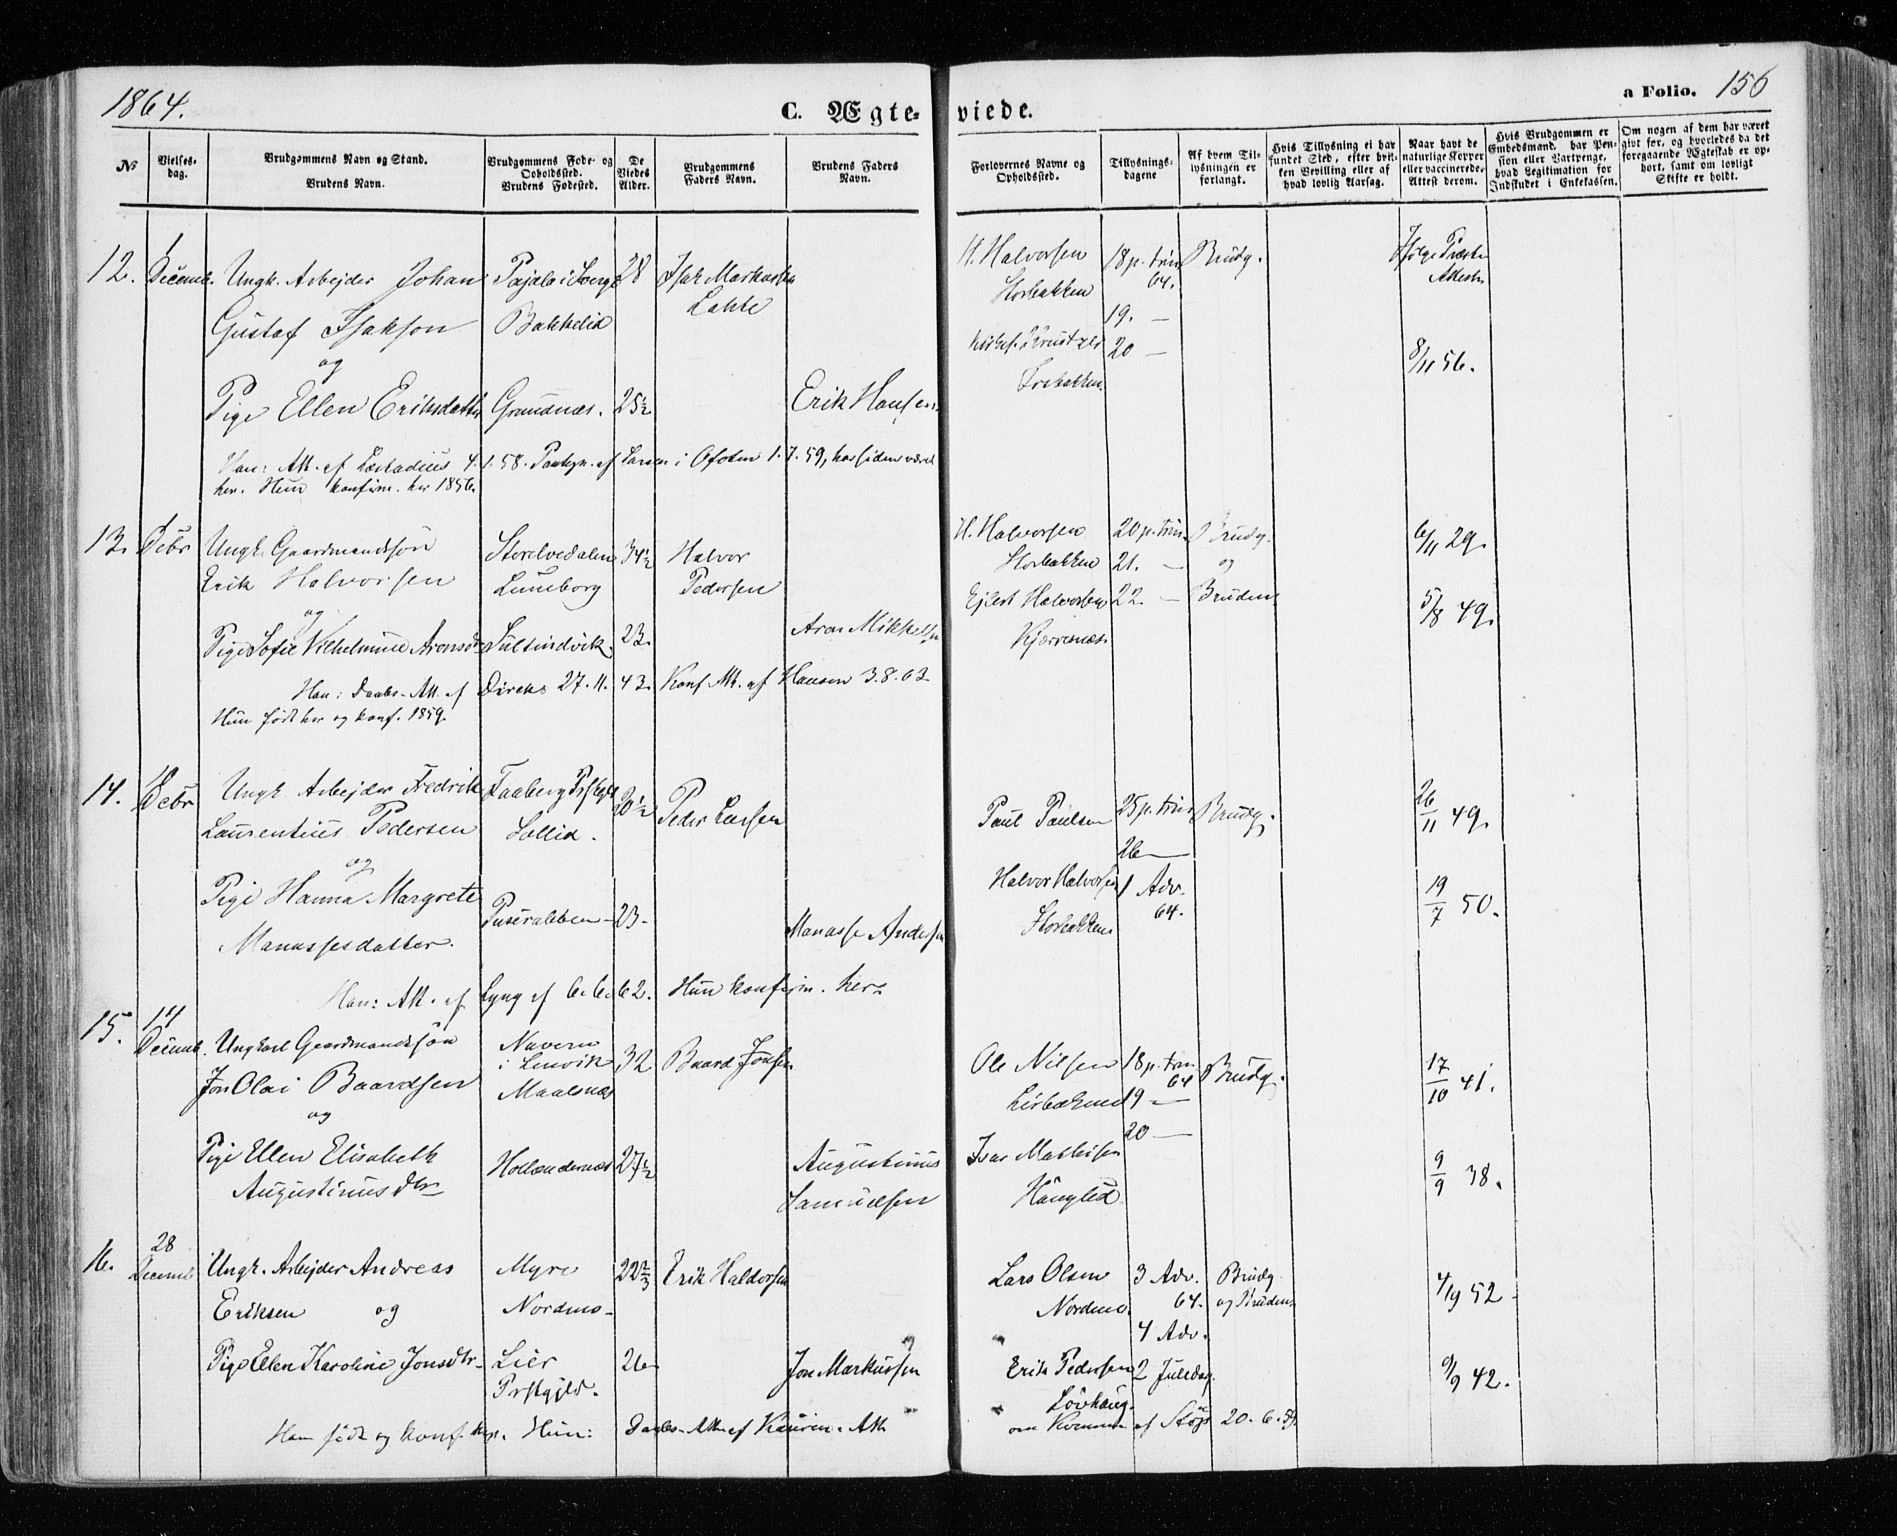 1864.
C. Ægte-viede.
a Folio. 156
No
Vielses-dag.
Brudgommens Navn og Stand.
Brudens Navn.
Brudgommens Føde- og Opholdssted.
Brudens Fødested.
De Viedes Alder.
Brudgommens Faders Navn.
Brudens Faders Navn.
Forlovernes Navne og Opholdssted.
Tillysnings-dagene
Af hvem Til-lysningen er forlangt.
Hvis Tillysning ei har fundet Sted, efter hvil-ken Bevilling eller af hvad lovlig Aarsag.
Naar havt de naturlige Kopper eller vaccinerede. Attest derom.
Hvis Brudgommen er Embedsmand, har Pen-sion eller Vartpenge, hvad Legitimation for Indskudet i Enkekassen.
Om nogen af dem har været gift før, og hvorledes da det foregaaende Ægteskab er op-hørt, samt om lovligt Skifte er holdt.
12. 1 Decemb. Ungk. Arbejder Johan Pajala i Sverge 28 Isak Markusen H. Halvorsen 18 p. trin 64. Brudg. Ifølge Præste Attest
Gustaf Isakson Bakkelid Lakke Storbakken 19. —
og 20 — 8/11 56.
Pige Ellen Eriksdatter Grundnæs. 25½ Erik Hansen
Han: Att. af Læstadius 4.1.58. af Larsen i Ofoten 1.7.59, har siden været
her. Hun konfirm. her 1856.
13. 1 Decbr Ungk. Gaardmandssøn Storelvedalen 34½ Halvor H. Halvorsen 20 p. trin. Brudg. 6/11 29.
Erik Halvorsen Luneborg Pedersen Storbakken 21. — og
og Ejlert Halvorsen 22. — Bruden 5/8 49.
Pige Sofie Vilhelmine Aronsdtr 23. Aron Mikkelsen Kjærresnæs
Han: Daabs-Att. af Dircks 27.11.43. Konf. Att. af Hansen 3.8.63
Hun født her og konf. 1859.
14. Decbr Ungk. Arbejder Fredrik Faaberg Prstgld 30½ Peder Larsen Paul Paulsen 25 p. trin Brudg. 26/11 49.
Laurentius Pedersen Sollid. 26 —
og Halvor Halvorsen 1 Adv. 64. 19/7 50.
Pige Hanna Margrete 23. Storbakken
Manassesdatter. Manasse Andersen
Han: Att. af Lyng af 6.6.62. Hun konfirm. her.
15. 14 Decemb. Ungkarl Gaardmandssøn i Lenvik 32 Baard Jonsen Ole Nilsen 18 p. trin 64 Brudg. 17/10 41.
Jon Olai Baardsen Maalsnæs 19 —
og 20 —
Pige Ellen Elisabeth Hollændernæs 27½ Augustinus Ivar Mathisen 9/9 38.
Augustinusdtr Samuelsen Haugled
16. 28 Decemb Ungk. Arbejder Andreas Myre 22⅔ Erik Haldorsen Lars Olsen 3 Adv. 64. Brudg. 4/9 52.
Eriksen og Nordmo. Nordmo. 4 Adv. og Bruden
Pige Ellen Karoline Jonsdtr. Lier 26 Jon Markussen Erik Pedersen 2 Juledag. 9/9 42.
Prstgjeld. Løvhaug.
Han født og konf. her. Hun: Daabs-Att. af Kaurin. Att. om Komm. af 20.6.